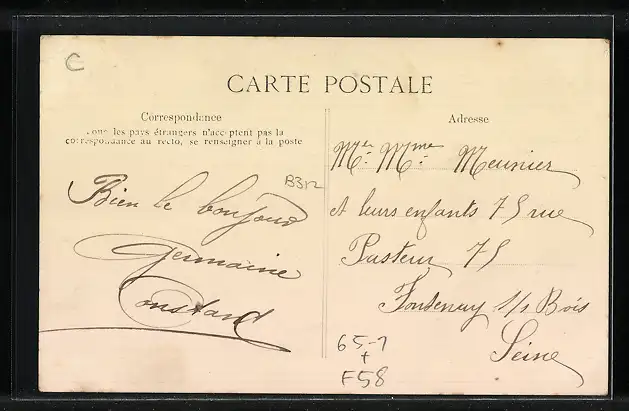 C
CARTE POSTALE
Correspondance
Tous les pays étrangers n'acceptent pas la
correspondance au recto, se renseigner à la poste
Adresse
B312
Bien le bonjour
Germaine
Constard
Mr. Mme. Meunier
et leurs enfants 75 rue
Pasteur 75
Fontenay s/s Bois
Seine
65-1
+
F58